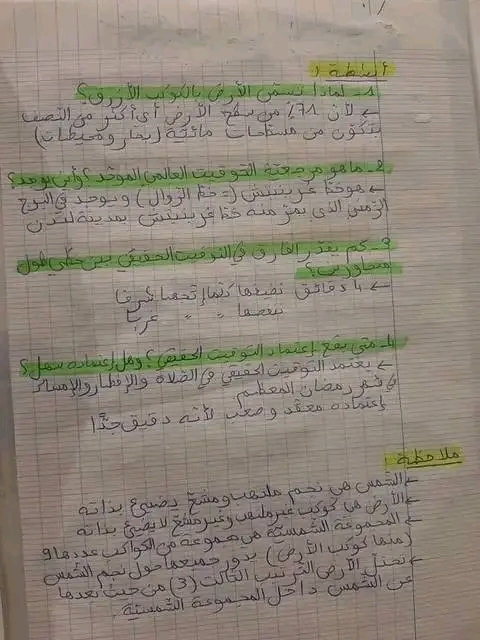 أنشطة 1
1- لماذا تسمى الأرض بالكوكب الأزرق؟
← لأن 71% من سطح الأرض أي أكثر من النصف
يتكون من مسطحات مائية (بحار ومحيطات)
2- ما هو مرجعية التوقيت العالمي الموحد؟ وأين يوجد؟
← هو خط غرينيتش (= خط الزوال) ويوجد في البرج
الزمني الذي يمر منه خط غرينيتش بمدينة لندن
3- كم يقدر الفارق في التوقيت الحقيقي بين خطي طول
متجاورين؟
← 4 دقائق نضيفها كلما إتجهنا شرقا
ننقصها " " غربا
4- متى يقع إعتماد التوقيت الحقيقي؟ وهل إعتماده سهل؟
← يعتمد التوقيت الحقيقي في الصلاة والإفطار والإمساك
في شهر رمضان المعظم
إعتماده معقد وصعب لأنه دقيق جدًّا
ملاحظة:
← الشمس هي نجم ملتهب ومشع يضيئ بذاته
← الأرض هي كوكب غير ملتهب وغير مشع لا يضيئ بذاته
← المجموعة الشمسية هي مجموعة من الكواكب عددها 9
(منها كوكب الأرض) يدور جميعها حول نجم الشمس
← تحتل الأرض الترتيب الثالث (3) من حيث بعدها
عن الشمس داخل المجموعة الشمسية.